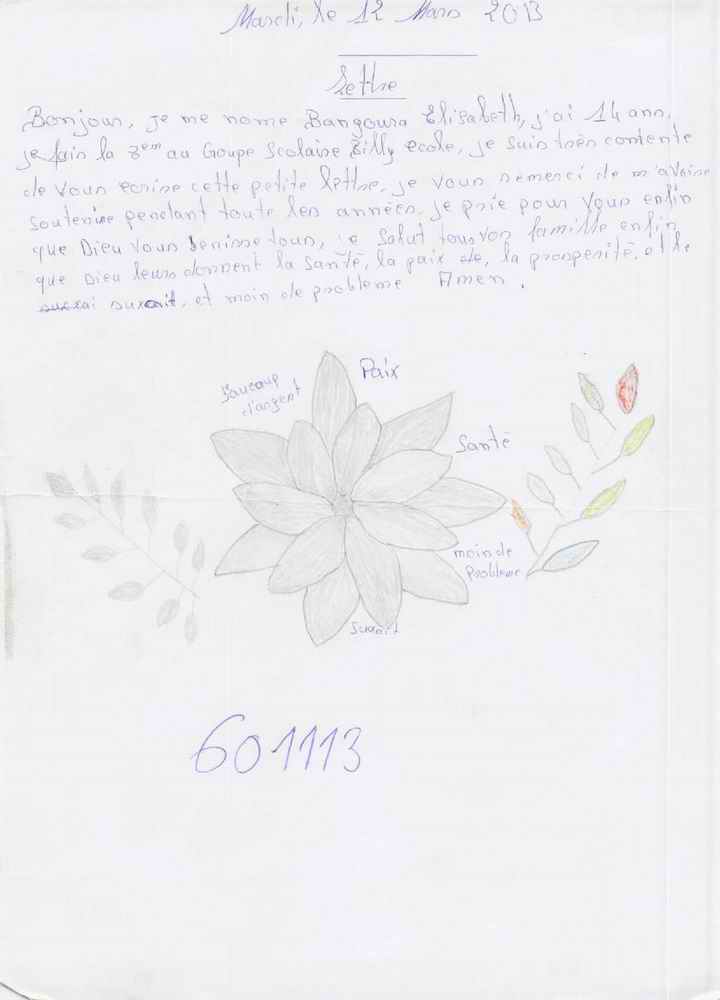 Mardi, le 12 Mars 2013
Lettre
Bonjour, je me nome Bangoura Elisabeth, j'ai 14 ans,
je fais la 8em au Goupe Scolaire Billy ecole, je suis très contente
de vous ecrire cette petite lettre, je vous remerci de m'avoire
soutenire pendant toute les années, je prie pour vous enfin
que Dieu vous benisse tous, je salut tous vos famille enfin
que Dieu leurs donnent la santé, la paix de, la prosperité, et le
suxait, et moin de probleme Amen.
Baucoup
d'argent
Paix
Santé
moin de
probleme
Suxait
601113